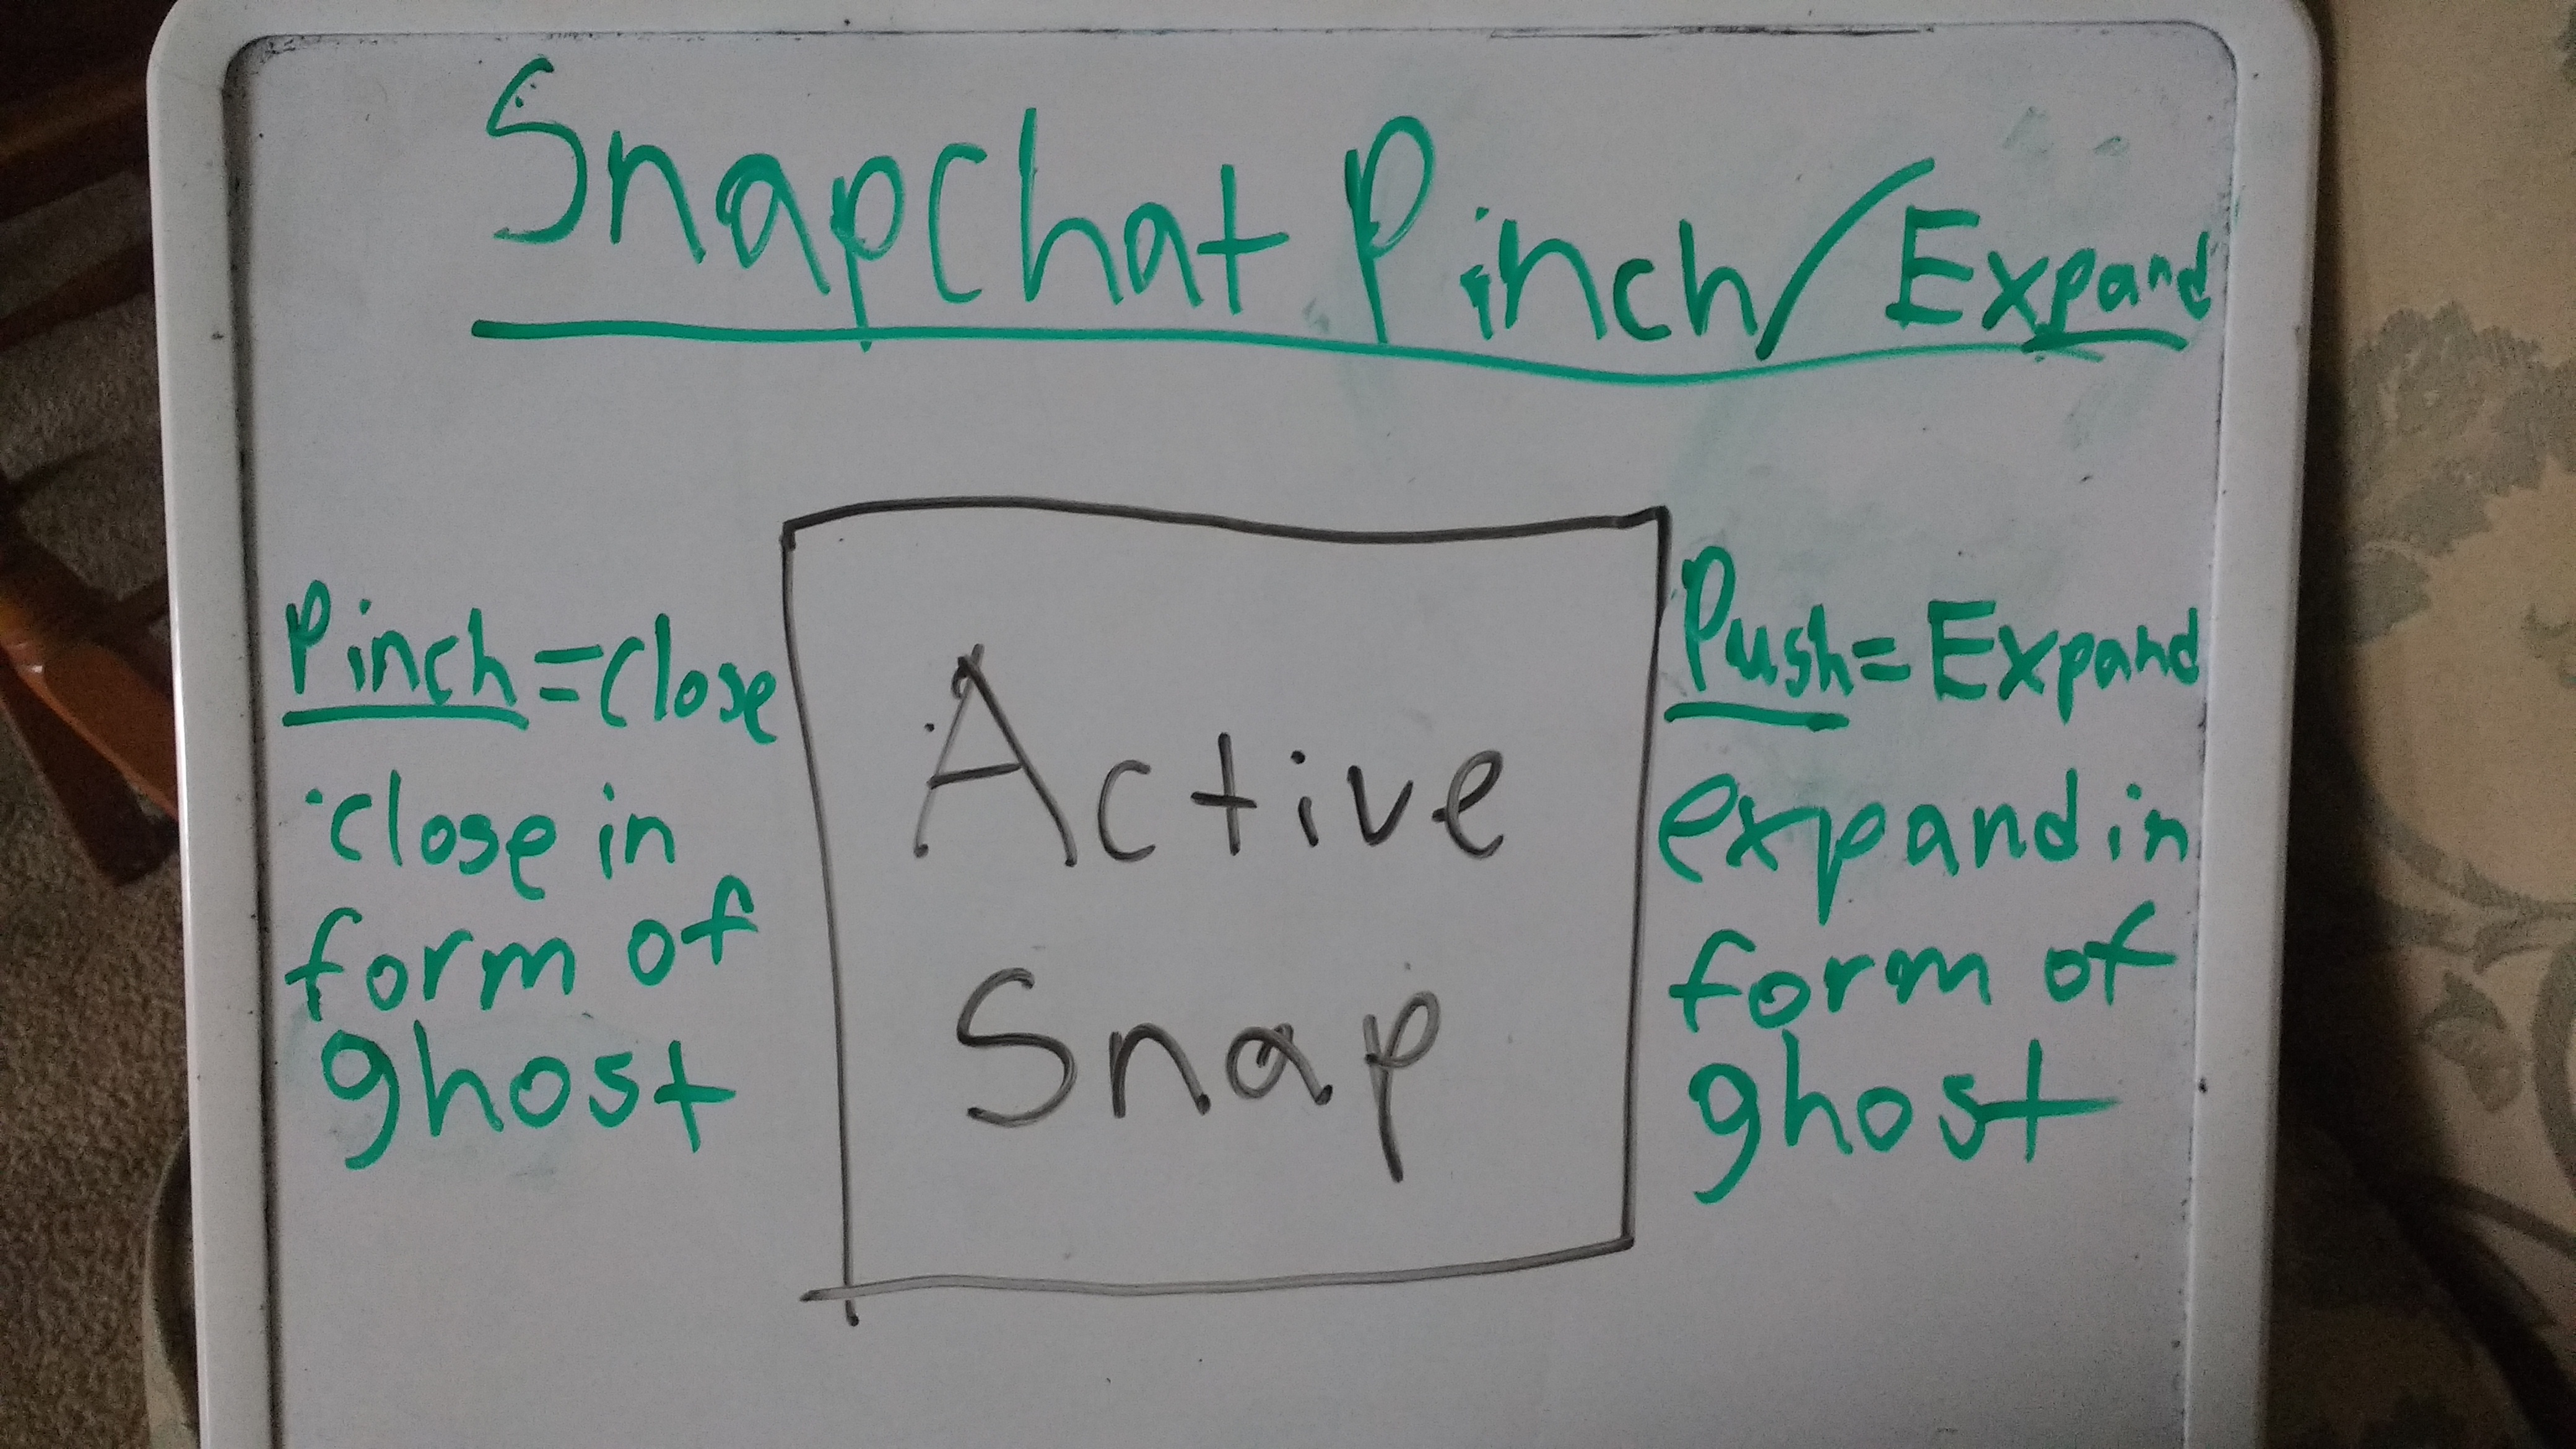 SnapChat Pinch/Expand
Pinch=Close
·close in
form of
ghost
Active
Snap
Push=Expand
expand in
form of
ghost